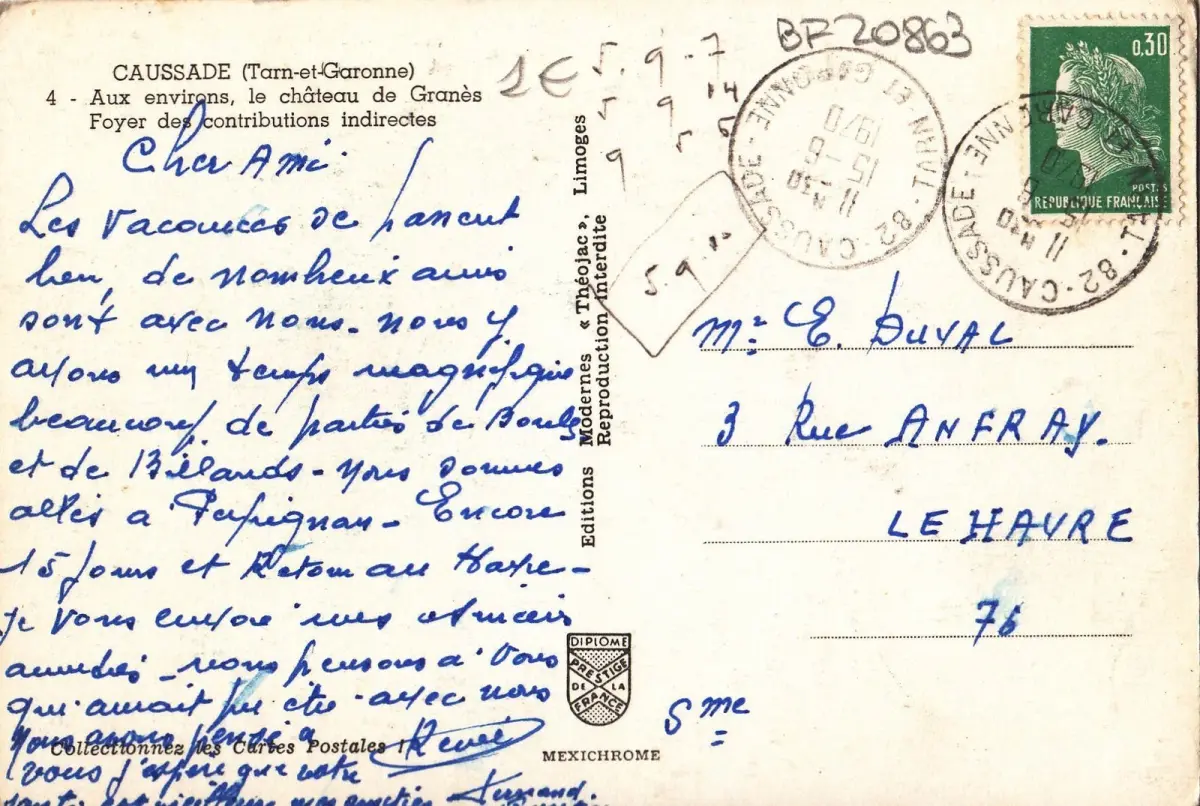 CAUSSADE (Tarn-et-Garonne)
4 - Aux environs, le château de Granès
Foyer des contributions indirectes
1€
5.9.7
9 14
5 9
9 5
5.9.10
BF 20863
0,30
POSTES
REPUBLIQUE FRANÇAISE
82 - CAUSSADE - TARN-ET-GARONNE
11 H 30
15 - 6
1970
82 - CAUSSADE - TARN-ET-GARONNE
11 H 30
15 - 6
1970
Cher Ami
Les Vacances se passent
bien, de nombreux amis
sont avec nous - nous y
avons un temps magnifique
beaucoup de parties de Bouls
et de Billards - nous sommes
allés a Perpignan - Encore
15 jours et Retour au Havre -
je vous envoie mes
nous pensons a vous
qui aurait pu être avec nous
nous avons pensé a
vous j'espère que votre
santé est meilleur
René
Fernand.
Collectionnez les Cartes Postales !
Editions Modernes « Théojac », Limoges
Reproduction interdite
DIPLOME
PRESTIGE
DE LA
FRANCE
MEXICHROME
Mr E. DUVAL
3 Rue ANFRAY.
LE HAVRE
76
Sme